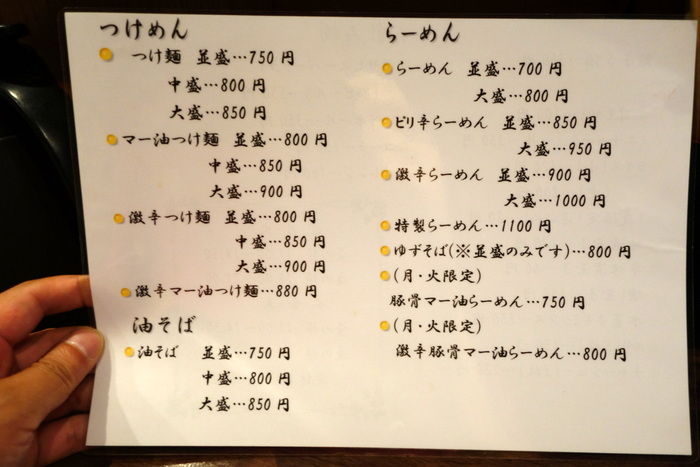 つけめん
つけ麺 並盛…750 円
中盛…800 円
大盛…850 円
マー油つけ麺 並盛…800 円
中盛…850 円
大盛…900 円
激辛つけ麺 並盛…800 円
中盛…850 円
大盛…900 円
激辛マー油つけ麺…880 円
油そば
油そば 並盛…750 円
中盛…800 円
大盛…850 円
らーめん
らーめん 並盛…700 円
大盛…800 円
ピリ辛らーめん 並盛…850 円
大盛…950 円
激辛らーめん 並盛…900 円
大盛…1000 円
特製らーめん…1100 円
ゆずそば(※並盛のみです)…800 円
(月・火限定)
豚骨マー油らーめん…750 円
(月・火限定)
激辛豚骨マー油らーめん…800 円